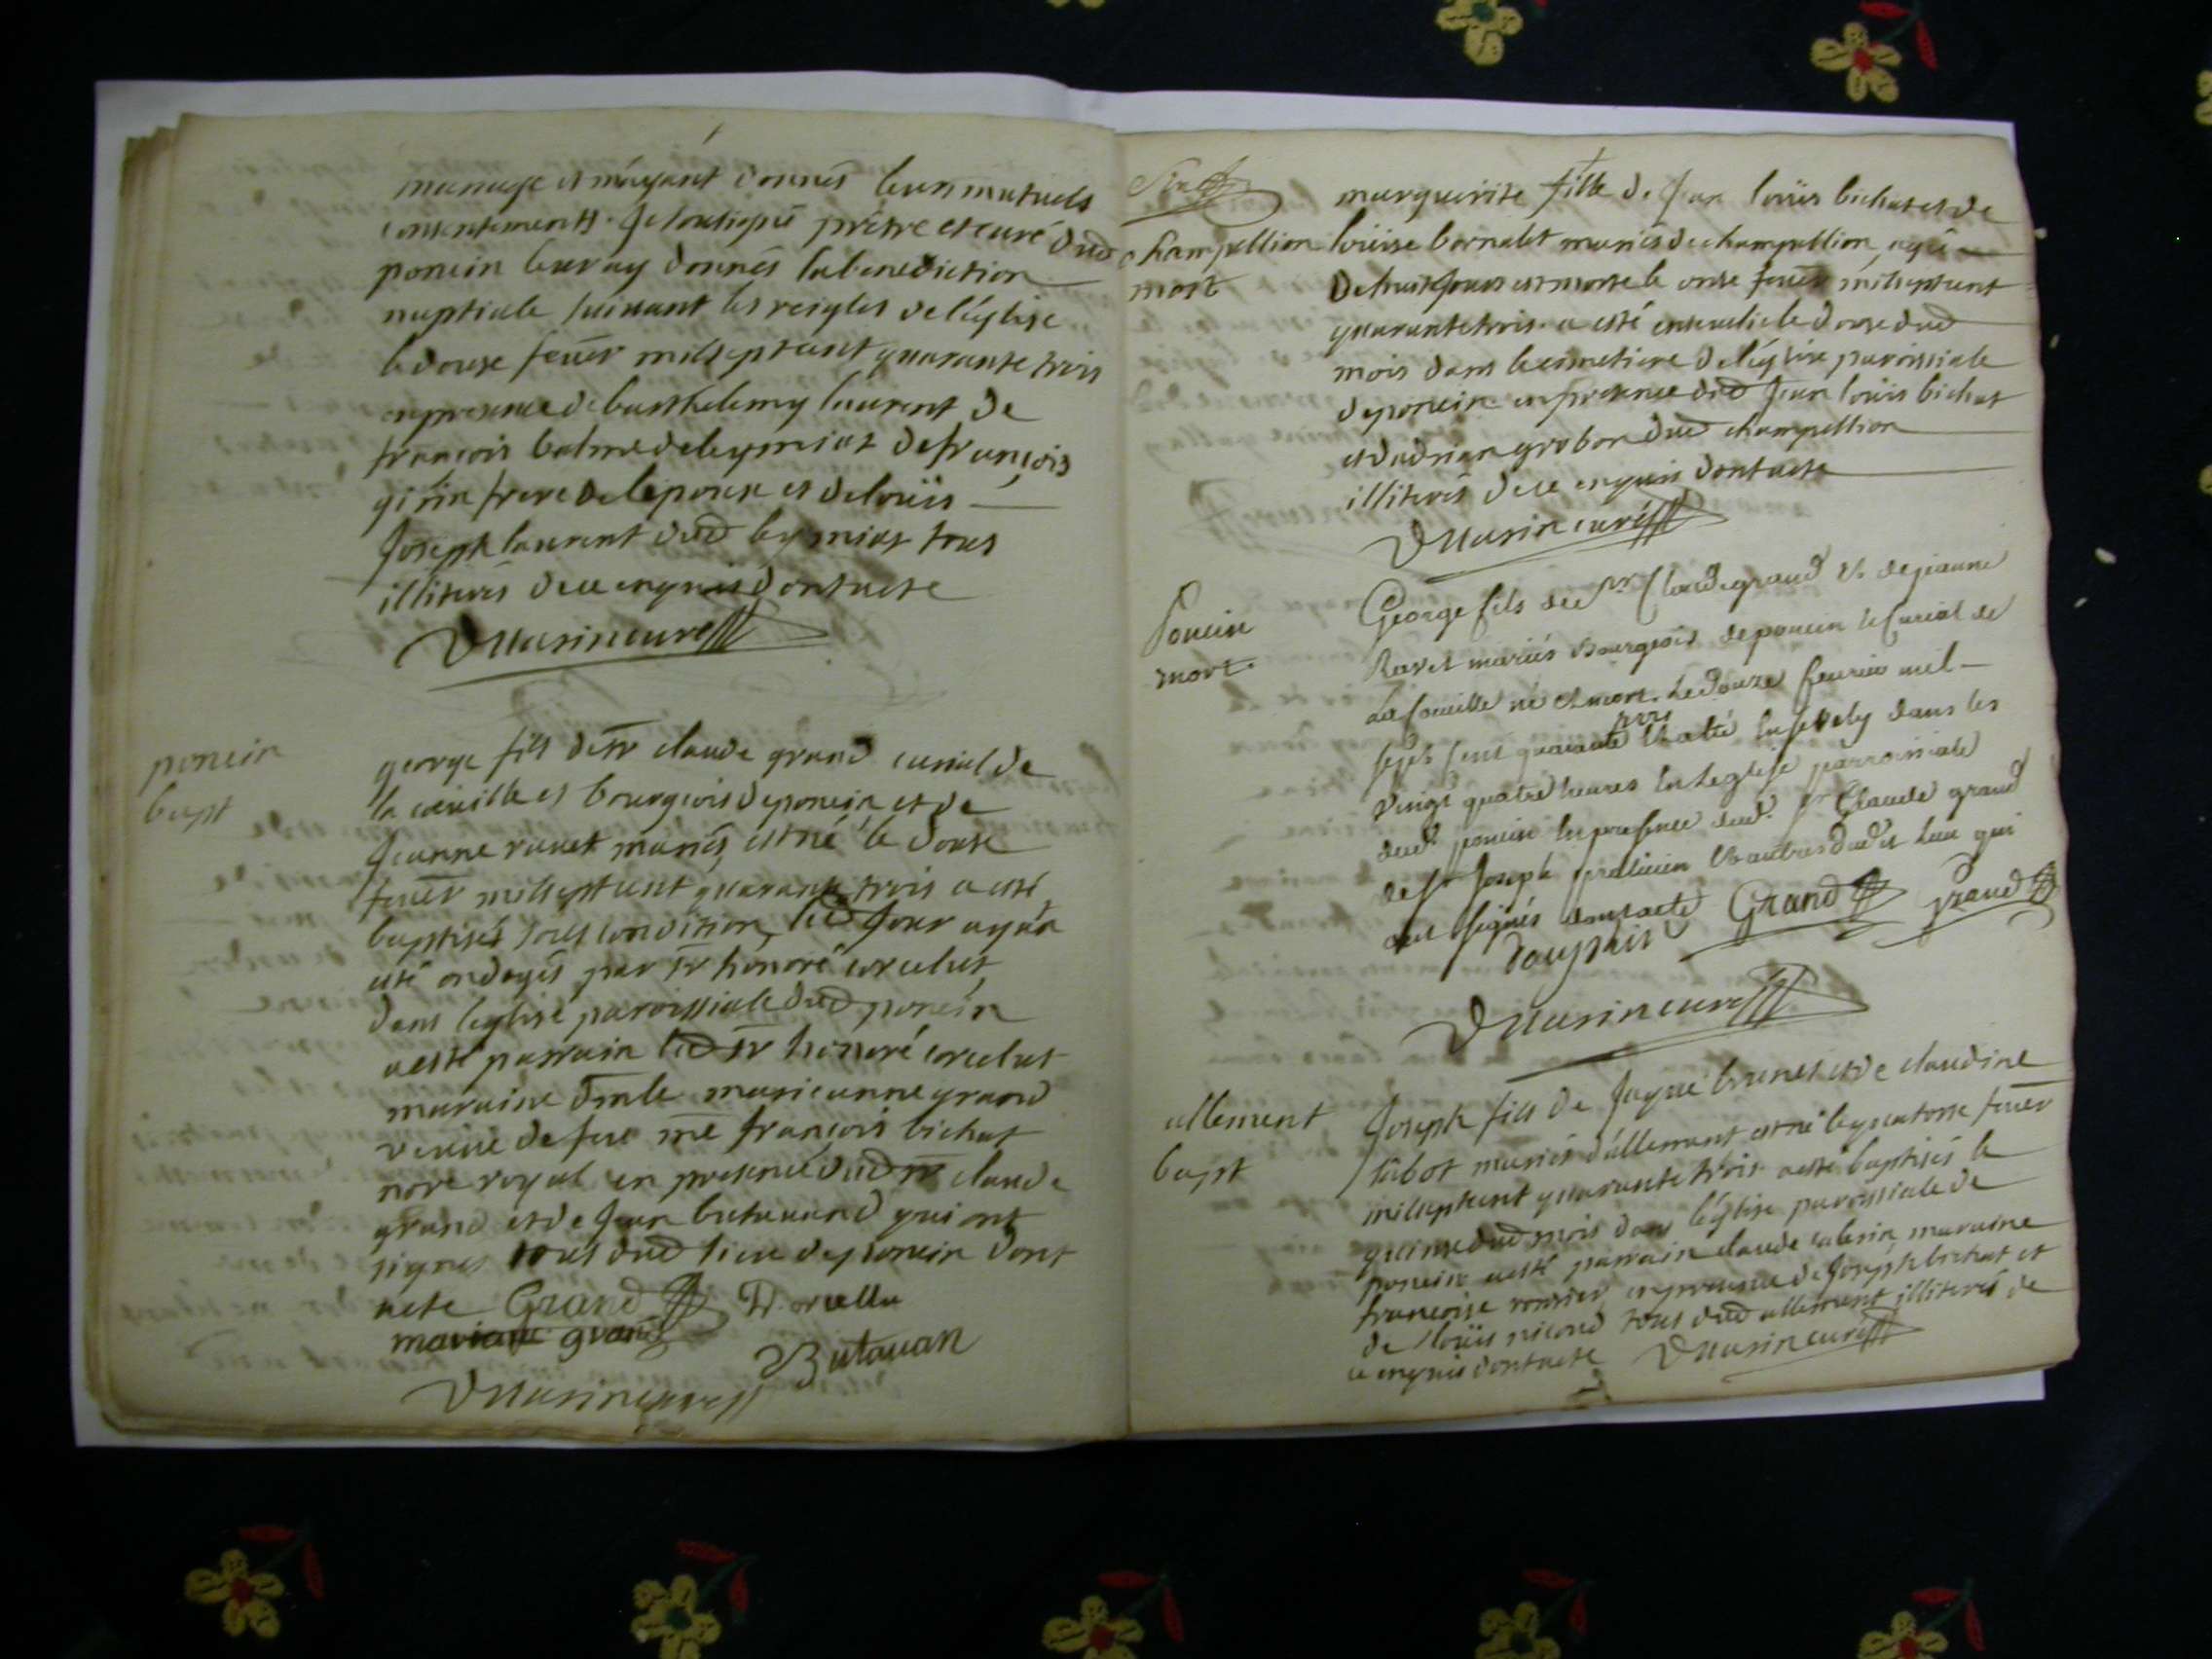 mariage et m'ayant donnés leurs mutuels
consentements. Je soubsigné prêtre et curé dud
poncin leur ay donnés la benediction
nuptiale suivant les reigles de l'église
le douse feuer milseptcent quarante trois
en presence de barthelemy laurent de
francois balme de leymiat de françois
girin frere de l'epoux et de loüis
Joseph laurent dud leymiat tous
illiterés de ce enquis dont acte
curé
poncin
bapt
george fils de sr claude grand curial de
la et bourgeois de poncin et de
Jeanne ravet mariés est né le douse
feuer milseptcent quarante trois a esté
baptisés sous condition led jour ayàn
esté ondoyés par sr honoré
dans l'eglise paroissiale dud poncin
a esté parrain led sr honoré
maraine dmlle marieanne grand
veuve de feu me françois bichat
nore royal en presence dud sr claude
grand et de Jean butavand qui ont
signés tous dud lieu de poncin dont
acte Grand
mariane grand
Butavan
curé
champellion
mort
marguerite fille de Jean loüis bichat et de
loüise bornalet mariés de champellion, agée
de huit Jours est morte le onse feuer milseptcent
quarante trois. a esté ensevelie le douse dud
mois dans le cimetiere de l'église paroissiale
de poncin en presence dud Jean loüis bichat
et d'adrian grobon dud champellion
illiterés de ce enquis dont acte
curé
Poncin
mort
George fils de sr Claude grand & de jeanne
Ravet mariés Bourgeois de poncin le Curial de
La né et mort. Le douze feurier mil
sept cent quarante trois & a été Ensevely dans les
vingt quatre heures En Leglise parroissiale
dud. poncin En presence dud. sr Claude grand
de sr Joseph & autres dudit Lieu qui
ont signés dont acte Grand Grand
Dauphin
curé
allement
bapt
Joseph fils de Jaque brunet et de claudine
tabot mariés d'allement est né le quatorse feuer
milseptcent quarante trois a esté baptisés le
quinse dud mois dans l'église paroissiale de
poncin a esté parrain claude maraine
francoise en presence de Joseph bichat et
de loüis nicoud tous dud allement illiterés de
ce enquis dont acte curé